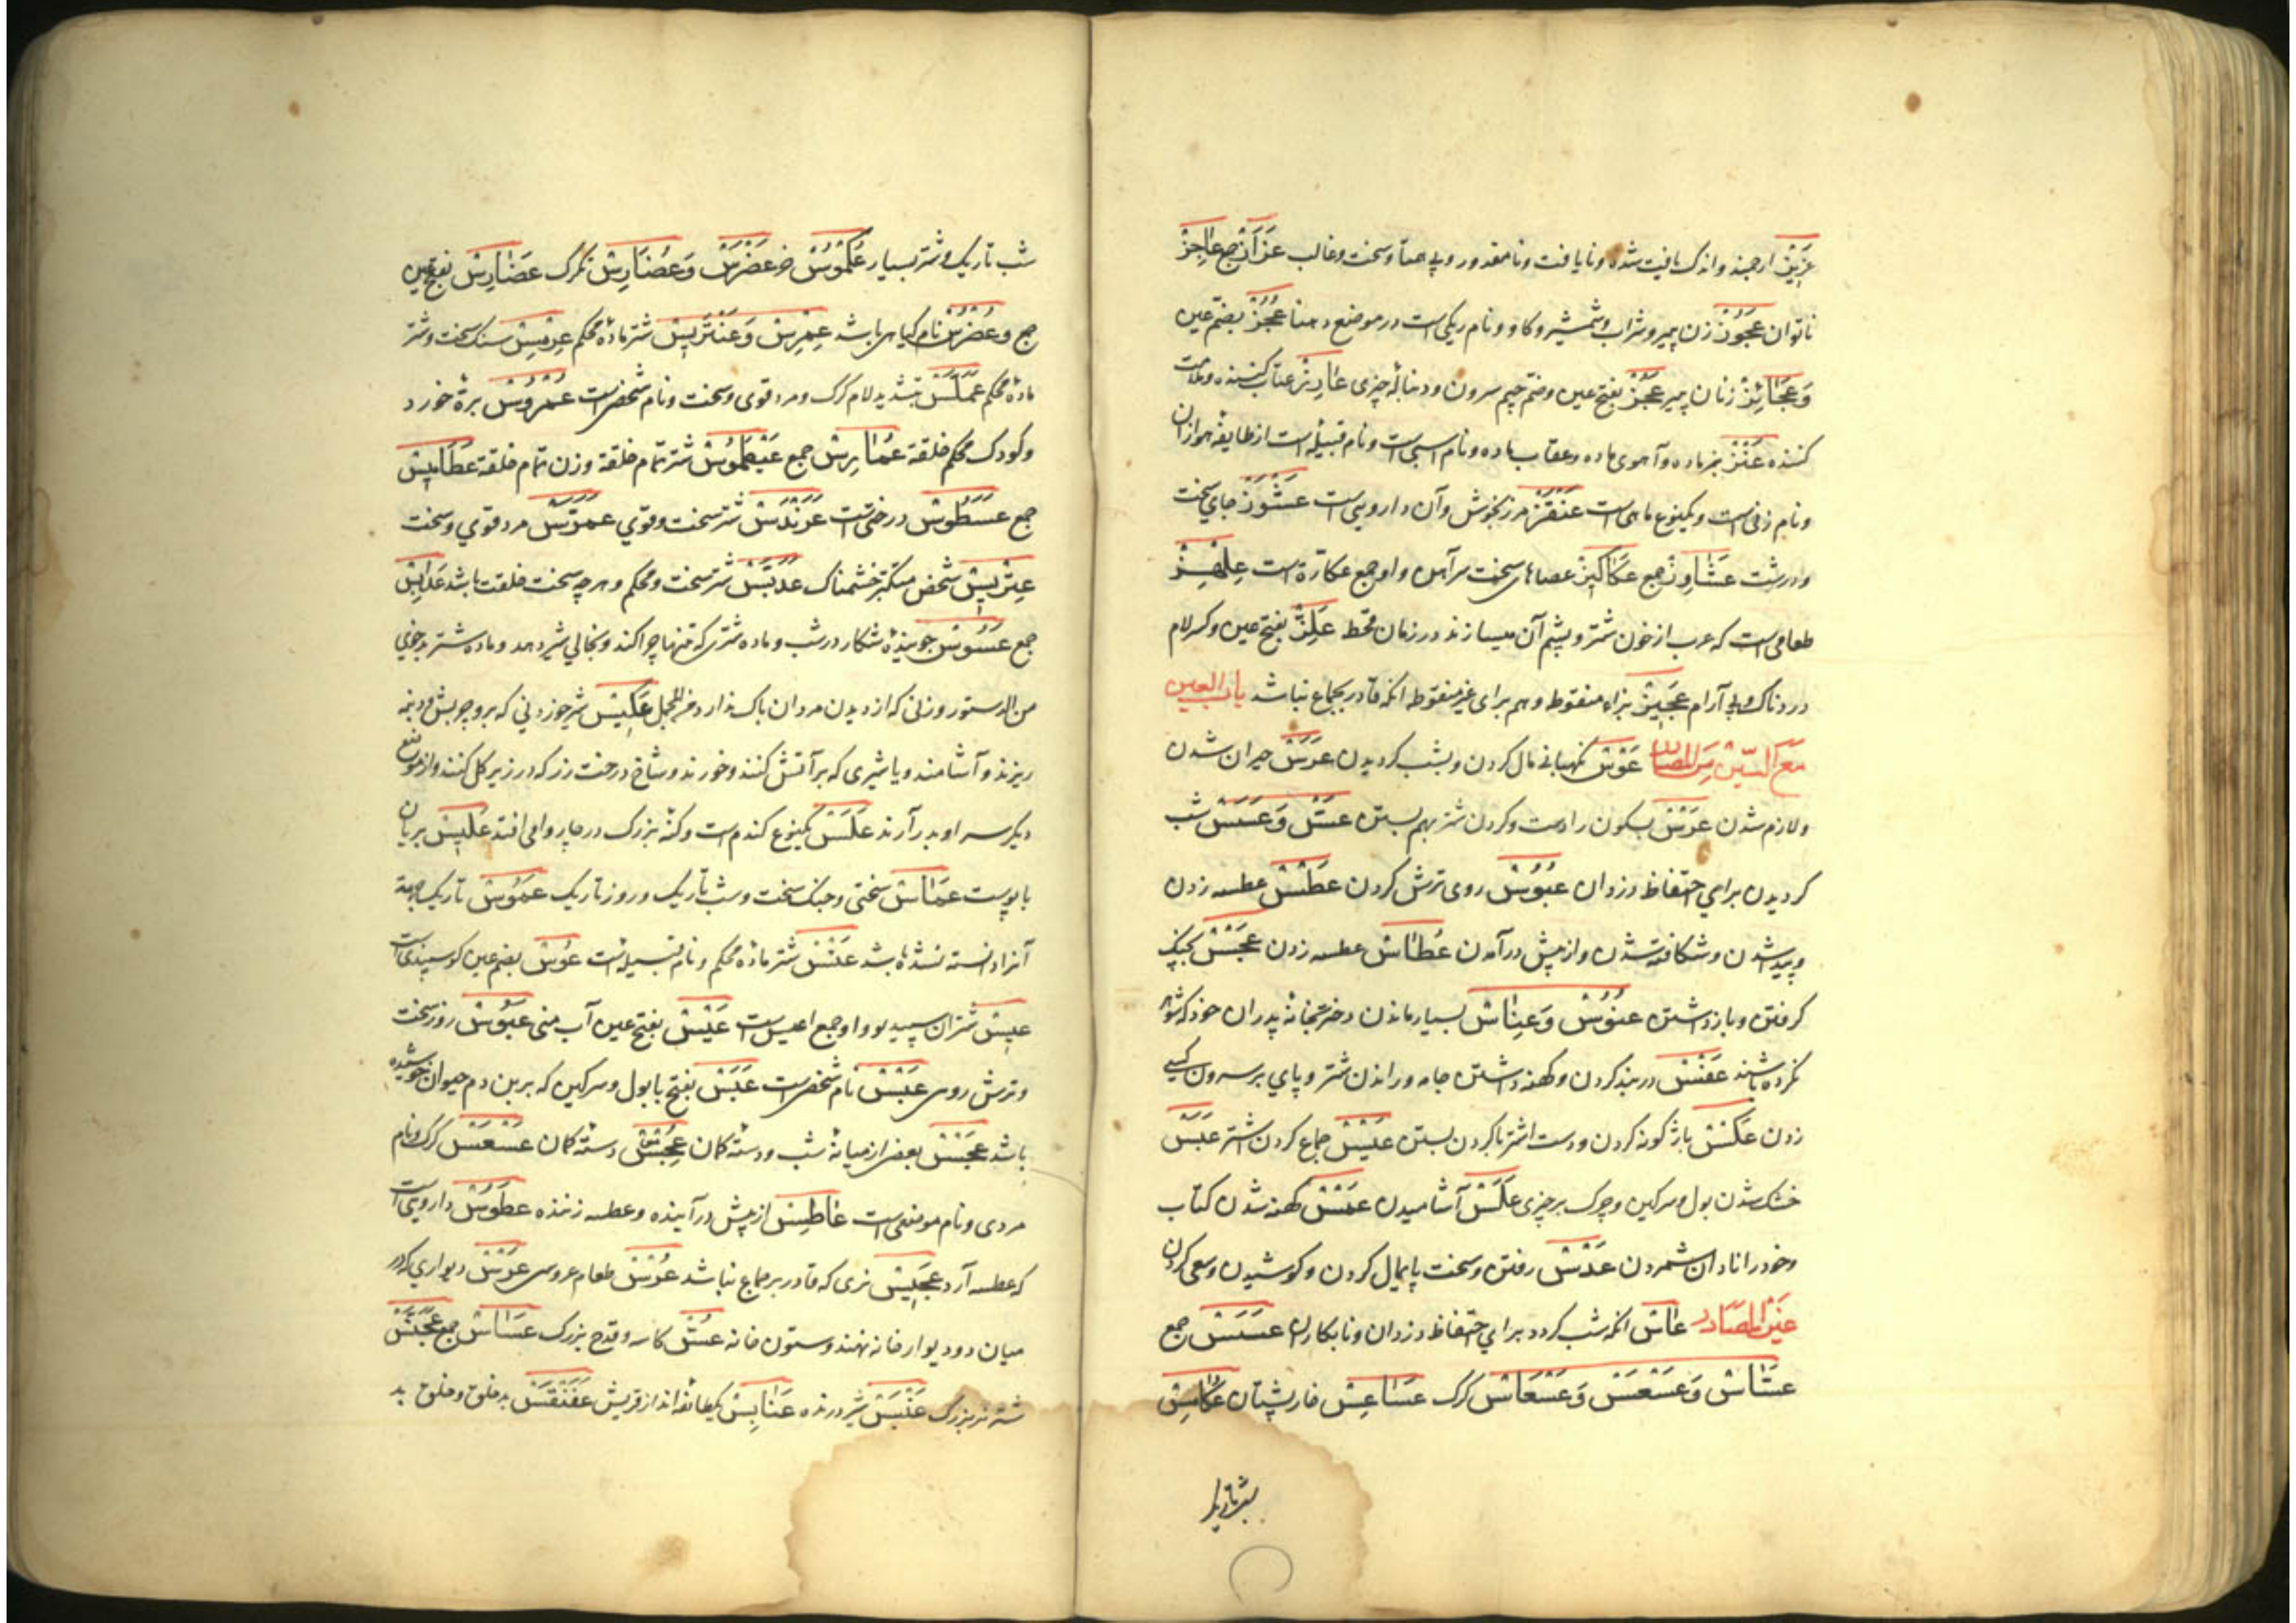 عَزِیز ارجمند و اندک یافت شده و نایافت و نامقدور و بی همتا و سخت و غالب عَزَّاز جمع عَاجِز
ناتوان عَجُوز زن پیر و شراب و شمشیر و کاو و نام ریکی است در موضع دهنا عُجُز بضم عین
وَعَجَائِز زنان پیر عَجُز بفتح عین و ضم جیم سرون و دنباله چیزی عتاب کننده و ملامت
کننده عَنْز بز ماده و آهوی ماده و عقاب ماده و نام اسبی است و نام قبیله است از طایفه هوازان
و نام زنی است و یکنوع ماهی است عَنْقَز مرزنجوش و آن دارویی است عَشَوْزَن جای سخت
و درشت عَشَاوِز جمع عَکَاکِیز عصاهای سخت سر آهن و او جمع عکازة است عِلْهِز
طعامی است که عرب از خون شتر و پشم آن میسازند در زمان قحط عَلِز بفتح عین و کسر لام
دردناک و بی آرام عَجِیز بزاء منقوطه و هم برای غیر منقوطه انکه قادر بجماع نباشد باب العین
مَعَ السِّین مِنَ المَصَادِر عَوْس نکهبانی مال کردن و بشب کردیدن عَرَس حیران شدن
و لازم شدن عَرْس بسکون را دست و کردن شتر بهم بستن عَسّ وَعَسَس شب
کردیدن برای احتفاظ دزدان عُبُوس روی ترش کردن عَطْس عطسه زدن
و پیدا شدن و شکافته شدن و از پیش درآمدن عُطَاس عطسه زدن عَجْس بچنک
کرفتن و باز داشتن عُنُوس وَعِنَاس بسیار ماندن دختر بخانه پدران خود که شوهر
نکرده باشند عَفْس در بند کردن و کهنه داشتن جامه و راندن شتر و پای بر سرون کسی
زدن عَکْس باژکونه کردن و دست اشتر با کردن بستن عَیْس جماع کردن شتر عَبَس
خشک شدن بول و سرکین و چرک بر چیزی عَلْس آشامیدن عَمْس کهنه شدن کتاب
و خود را نادان شمردن عَدْس رفتن و سخت پایمال کردن و کوشیدن و سعی کردن
غَیْرُ المَصَادِر عَاسّ انکه شب کردد برای احتفاظ دزدان و نابکاران عَسَس جمع
عَسَّاس وَعَسْعَس وَعَسْعَاس کرک عَسَاعِس خارپشتان عُکَامِس
شب تاریک
شب تاریک و شتر بسیار عُکْمُوس خر عَضْرَس وَعُضَارِس تکرک عَضَارِس بفتح عین
جمع و عَضْرَس نام کیاهی باشد عِرْمِس وَعَنْتَرِیس شتر ماده محکم عِرْمِس سنک سخت و شتر
ماده محکم عَمَلَّس بتشدید لام کرک و مرد قوی و سخت و نام شخصی است عُمْرُوس بره خورد
و کودک محکم خلقة عَمَارِیس جمع عَیْطَمُوس شتر تمام خلقة و زن تمام خلقة عَطَامِیس
جمع عَسَطُوس درختی است عَرَنْدَس شتر سخت و قوی عَمَرَّس مرد قوی و سخت
عِتْرِیس شخص متکبر خشمناک عَدَبَّس شتر سخت و محکم و هرچه سخت خلقت باشد عَدَابِس
جمع عَسُوس جوینده شکار در شب و ماده شتری که تنها چرا کند و بخالی شیر دهد و ماده شتر بدخوی
من الدستور و زنی که از دیدن مردان باک ندارد فی المجمل عَکِیس شیر خوردنی که برو چربش و دنبه
ریزند و آشامند و یا شیری که بر آتش کنند و خورند و شاخ درخت رز که در زیر کل کنند و از موضع
دیکر سر او بدر آرند عَلَس یکنوع کندم است و کنه بزرک در چاروا می افتد عَلِیس بریان
با پوست عَمَاس سختی و جنک سخت و شب تاریک و روز تاریک عَمُوس تاریک
آنرا دانسته نشده باشد عَنْس شتر ماده محکم و نام قبیله است عُوس بضم عین کوسپندی است
عِیس شتران سپید بود و او جمع اعیس است عَیْس بفتح عین آب منی عَبُوس روز سخت
و ترش روی عَبْس نام شخصی است عَبَس بفتح با بول و سرکین که بر بن دم حیوان خوشیده
باشد عَجْس بعضی از میانه شب و دسته کمان عُِجْس دسته کمان عَسْعَس کرک و نام
مردی و نام موضعی است عَاطِس از پیش درآینده و عطسه زننده عَطُوس دارویی است
که عطسه آرد عَجِیس نری که قادر بر جماع نباشد عُرْس طعام عروسی عَرْس دیواری که در
میان دو دیوار خانه نهند و ستون خانه عُسّ کاسه و قدح بزرک عِسَاس جمع عَجَنَّس
شتر نر بزرک عَنْبَس شیر درنده عَنَابِس یکطایفه اند از قریش عَفَنْقَس بد خلق و خلق بد